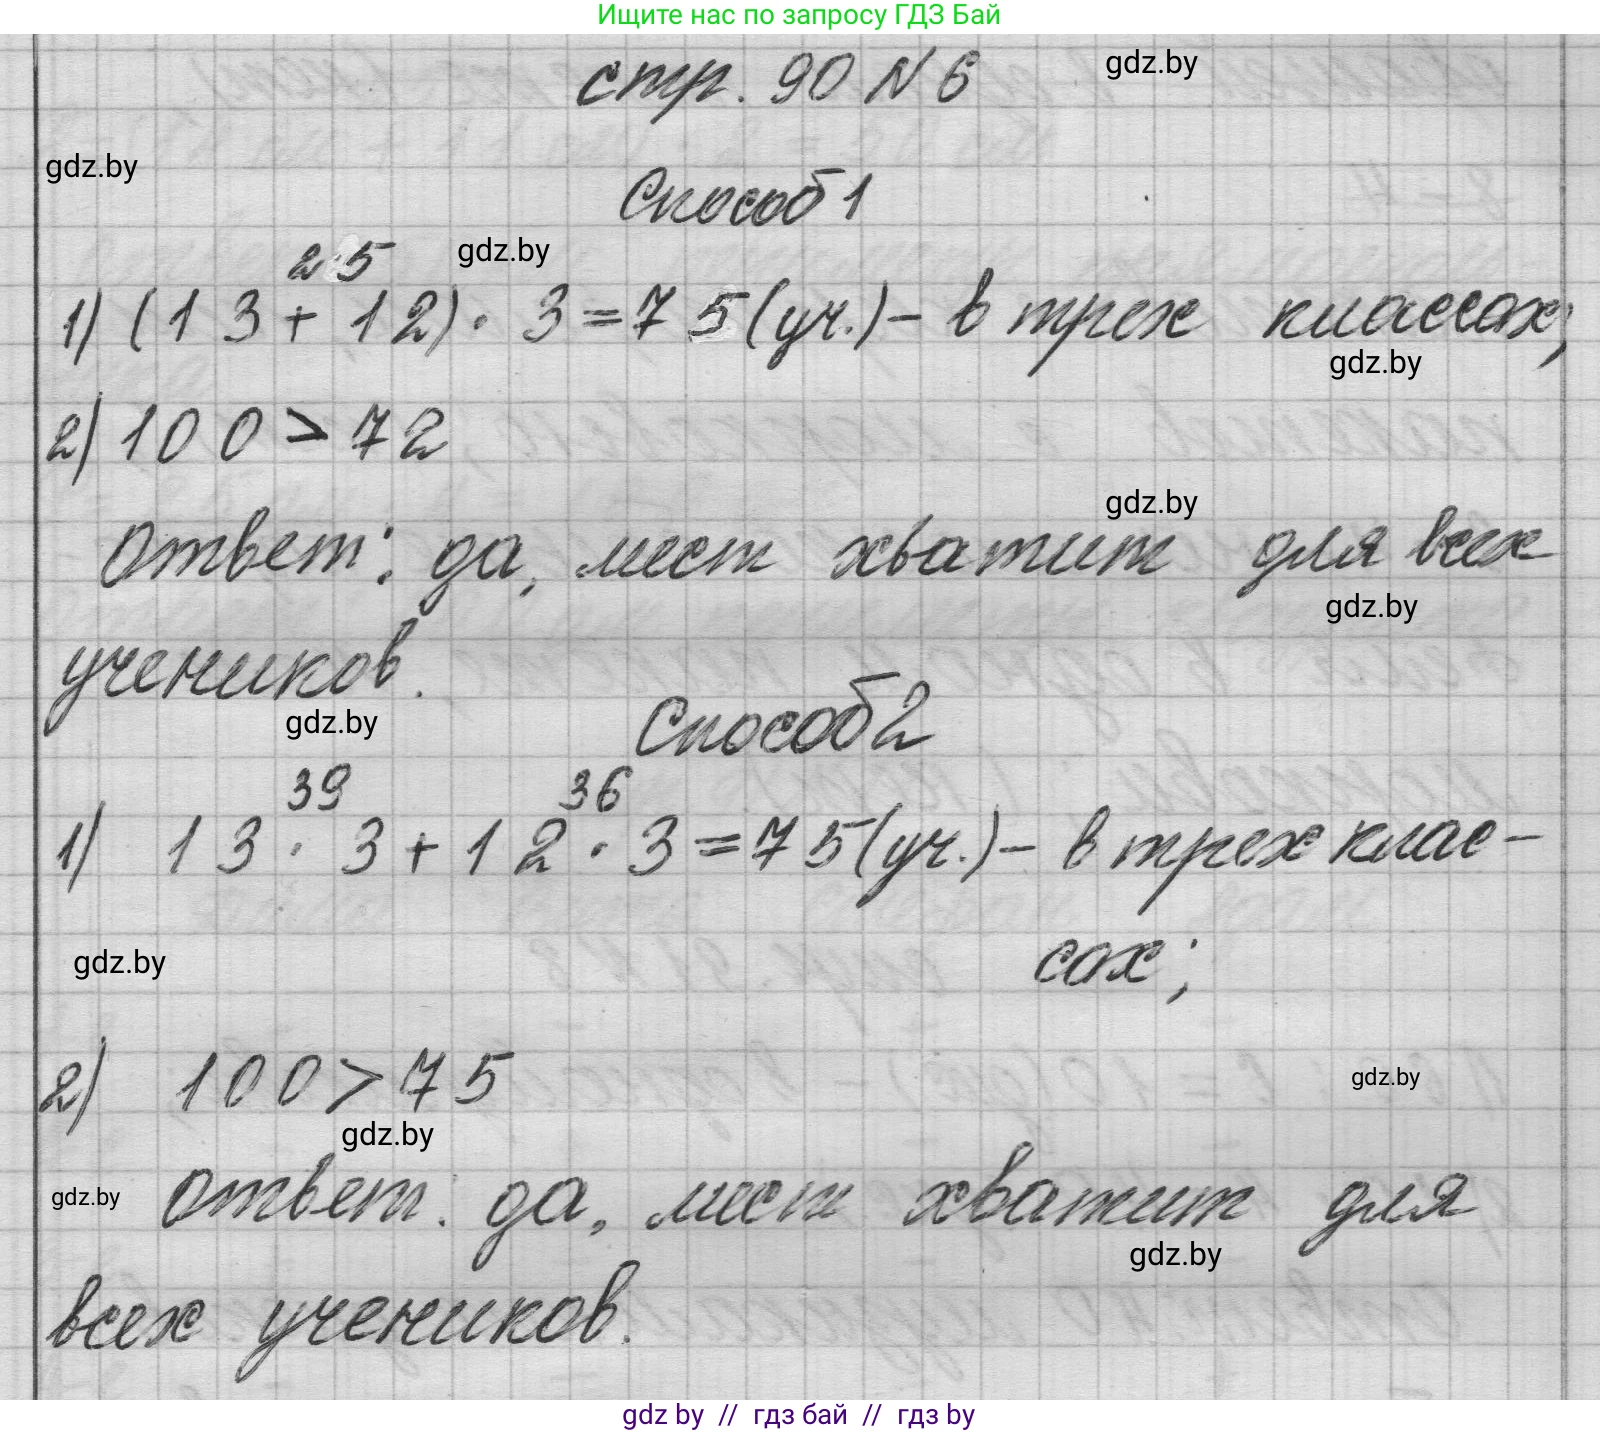 Ищите нас по запросу ГДЗ Бай
стр. 90 N 6
gdz.by
gdz.by
Способ 1
25
gdz.by
1) (13 + 12) · 3 = 75 (уч.) – в трех классах;
gdz.by
2) 100 > 72
gdz.by
Ответ: да, мест хватит для всех
gdz.by
учеников.
gdz.by
Способ 2
39 36
1) 13 · 3 + 12 · 3 = 75 (уч.) – в трех клас–
gdz.by
сах;
2) 100 > 75
gdz.by
gdz.by
gdz.by
Ответ: да, мест хватит для
gdz.by
всех учеников.
gdz by // гдз бай // гдз by